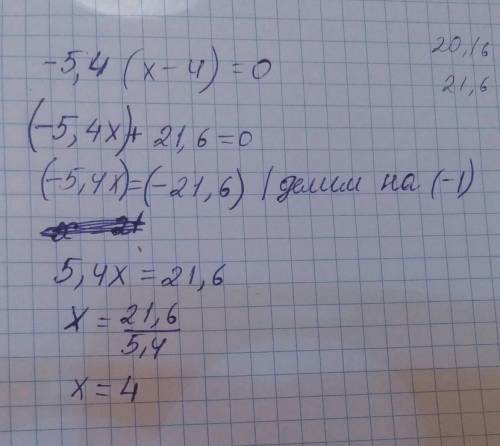 -5,4 (x-4)=0
20,16
21,6
(-5,4x)+21,6=0
(-5,4x)=(-21,6) | делим на (-1)
5,4x=21,6
x=21,6/5,4
x=4